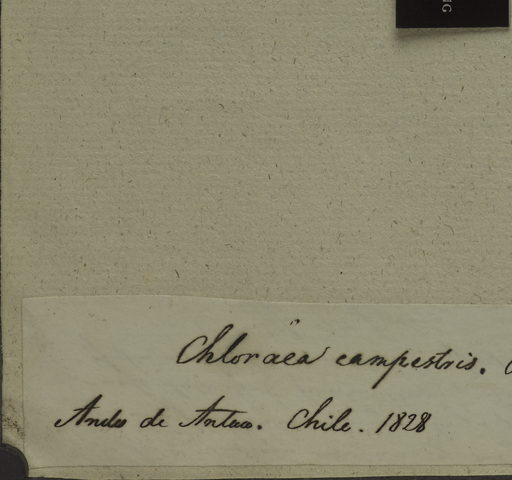 Chloraea campestris.
Andes de Antuco. Chile. 1828